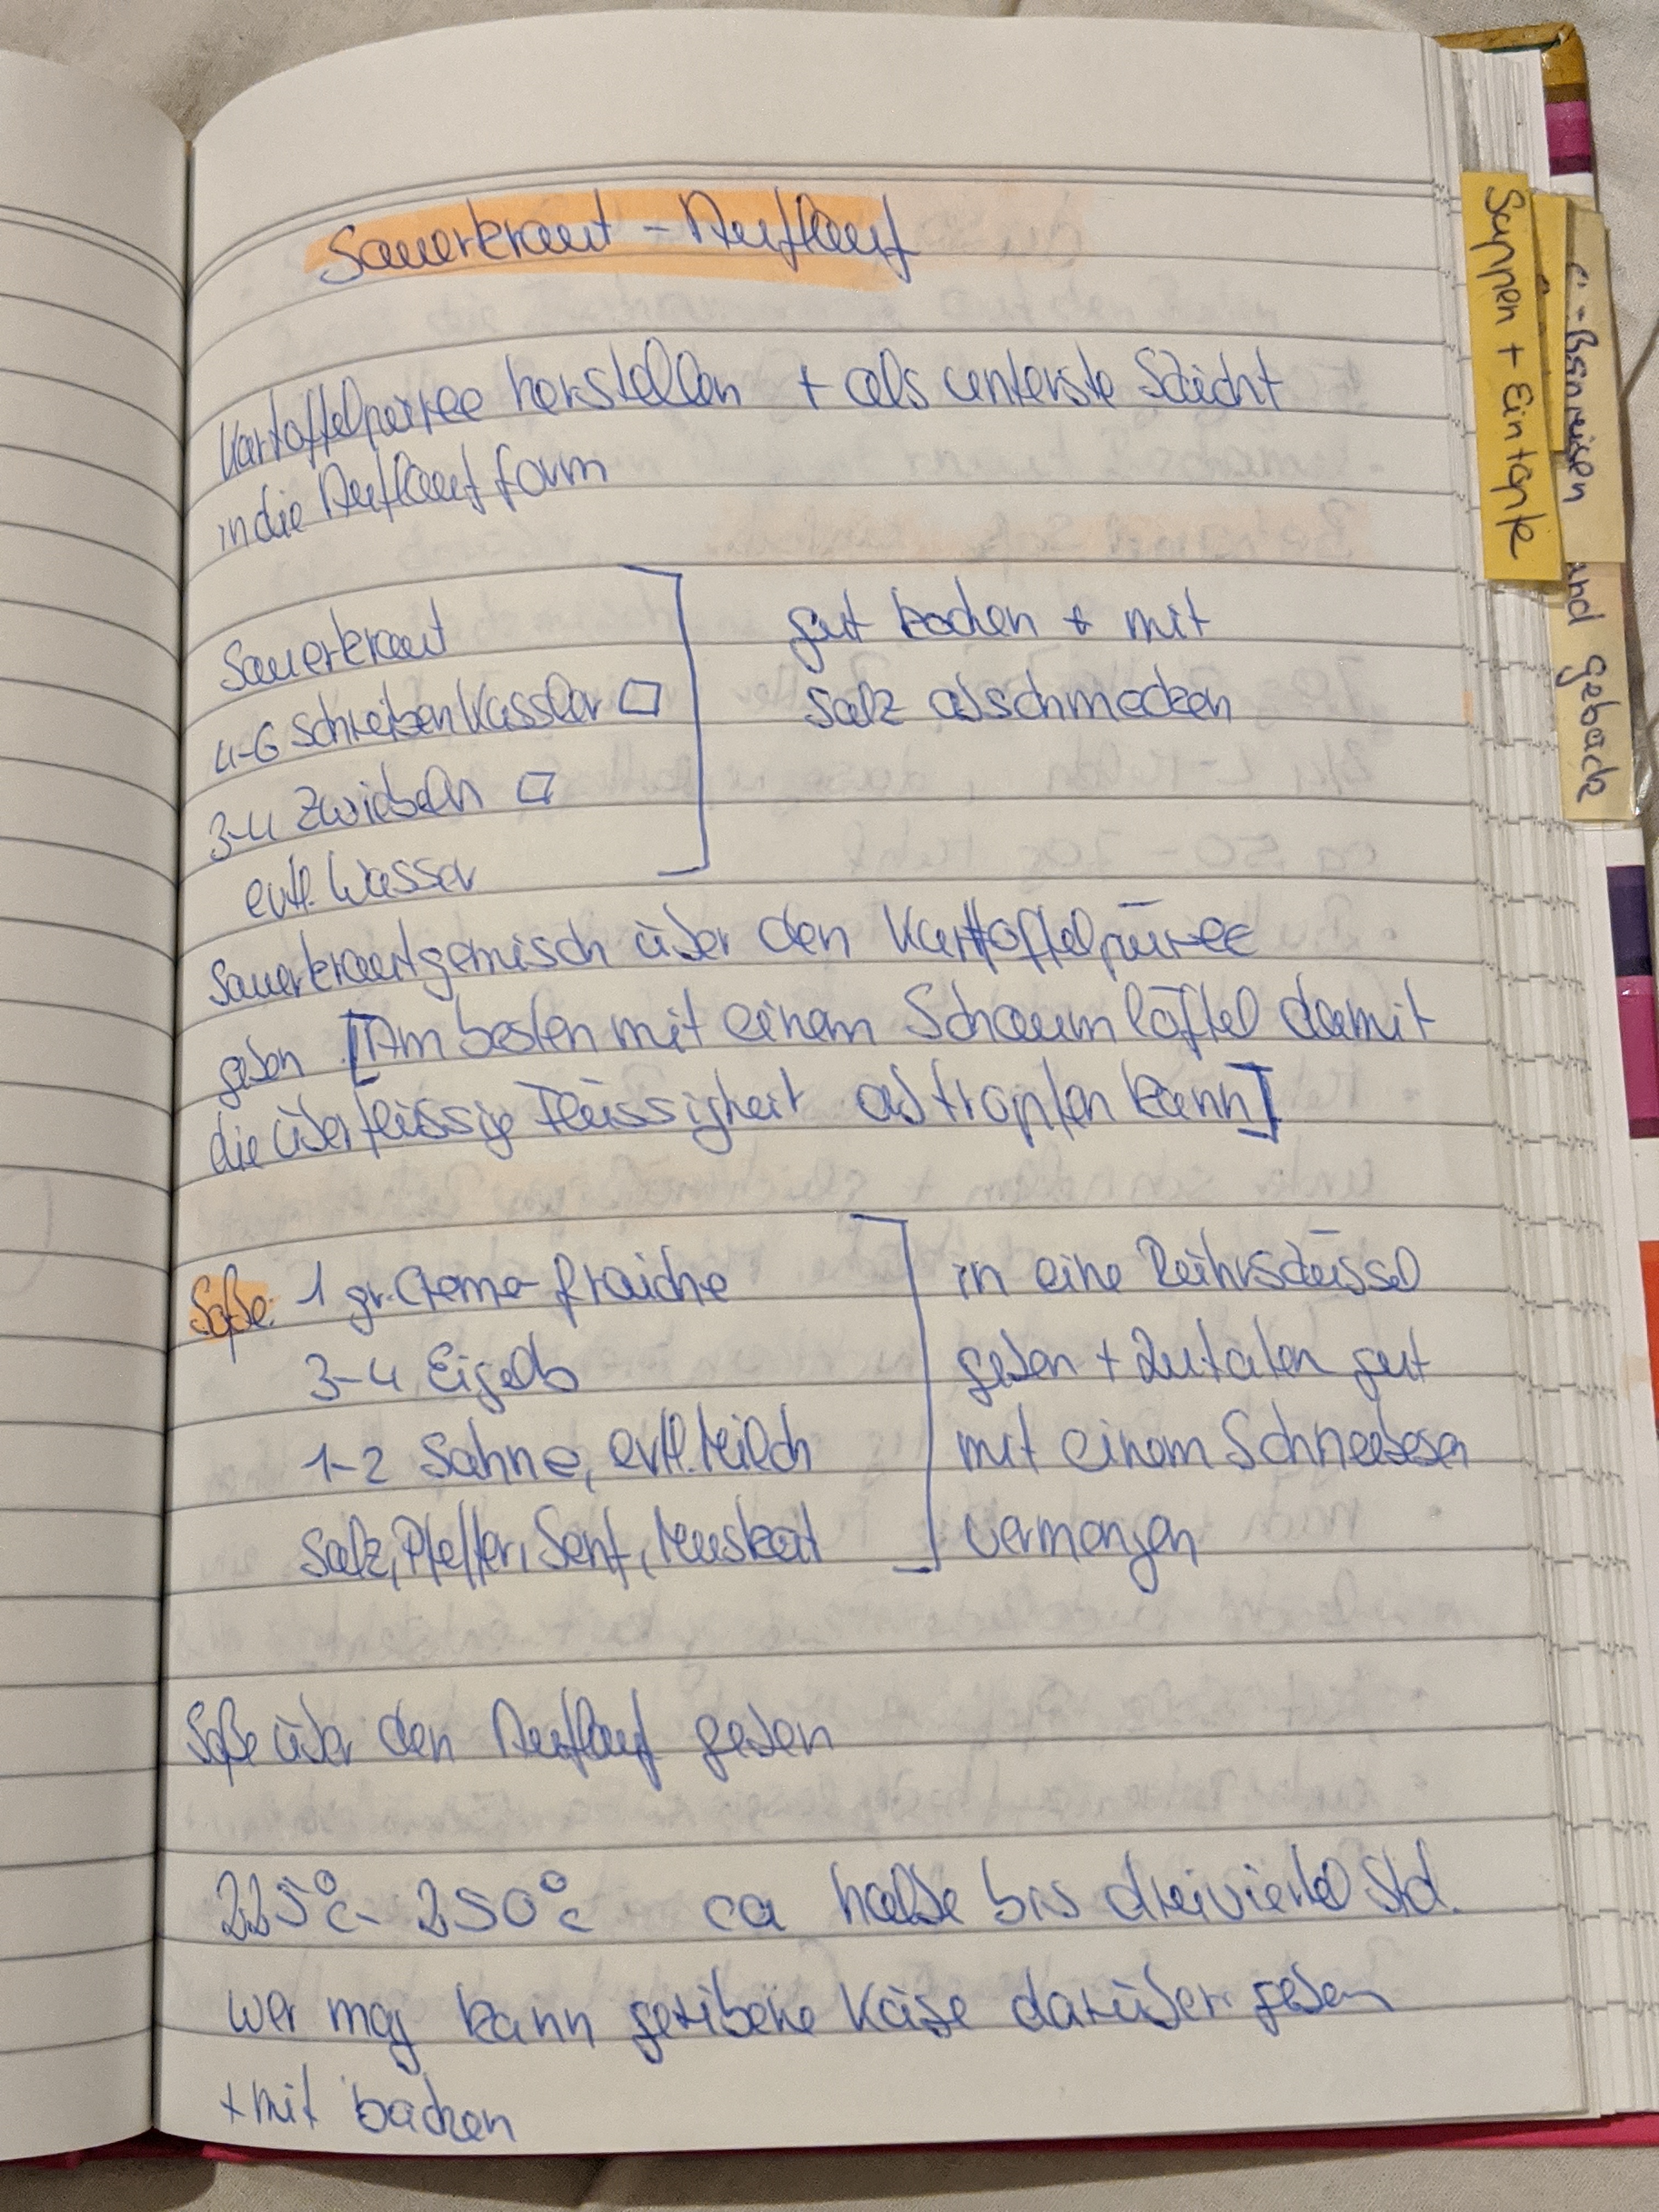 Sauerkraut - Auflauf
Kartoffelpüree herstellen + als unterste Schicht
in die Auflaufform
Sauerkraut
4-6 Schreiben Kassler
3-4 Zwiebeln
evtl. Wasser
gut kochen + mit
Salz abschmecken
Sauerkrautgemisch über den Kartoffelpüree
geben [Am besten mit einem Schaumlöffel damit
die überflüssige Flüssigkeit abtropfen kann]
Soße: 1 gr. Creme-fraiche
3-4 Eigelb
1-2 Sahne, evtl. Milch
Salz, Pfeffer, Senf, Muskat
in eine Rührschüssel
geben + Zutaten gut
mit einem Schneebesen
vermengen
Soße über den Auflauf geben
225°C - 250°C ca halbe bis dreiviertel Std.
wer mag kann geribene Käse darüber geben
+ mit backen
Suppen + Eintöpfe
und gebäck